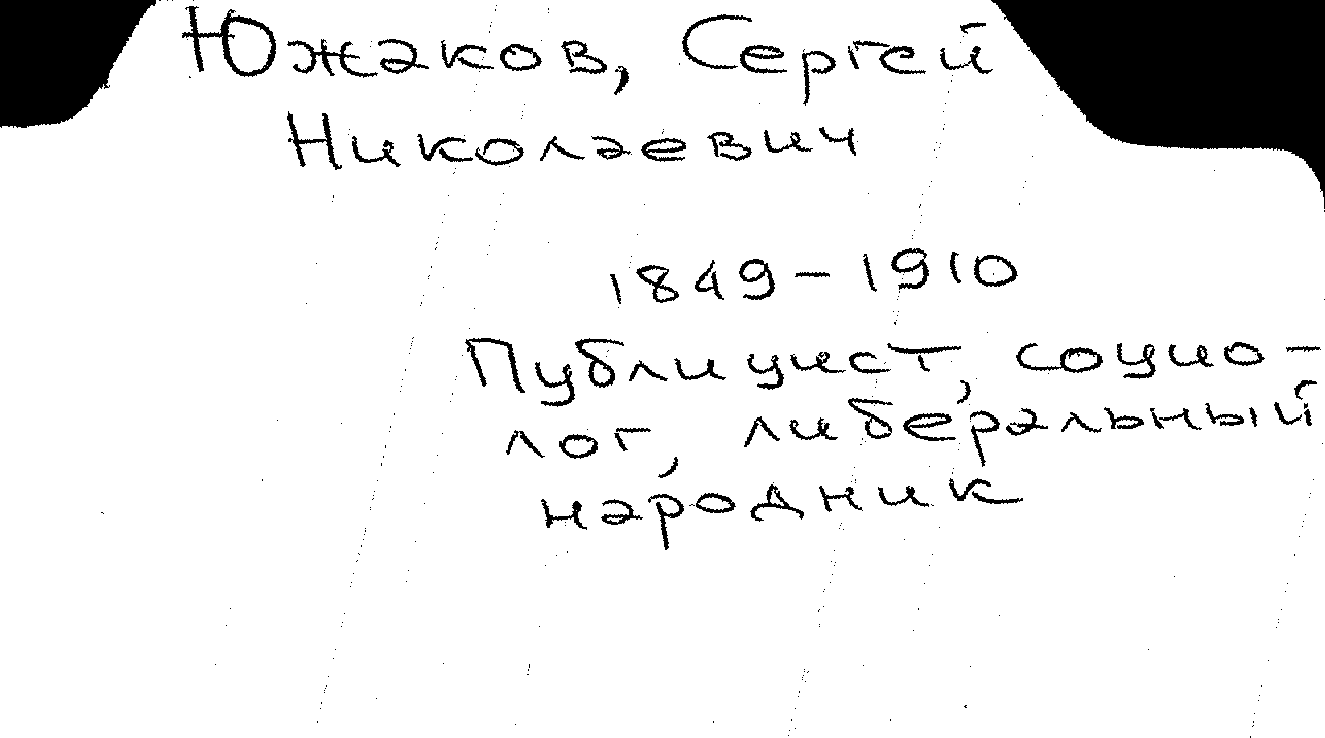 Южаков, Сергей
Николаевич
1849 – 1910
Публицист, социо-
лог, либеральный
народник